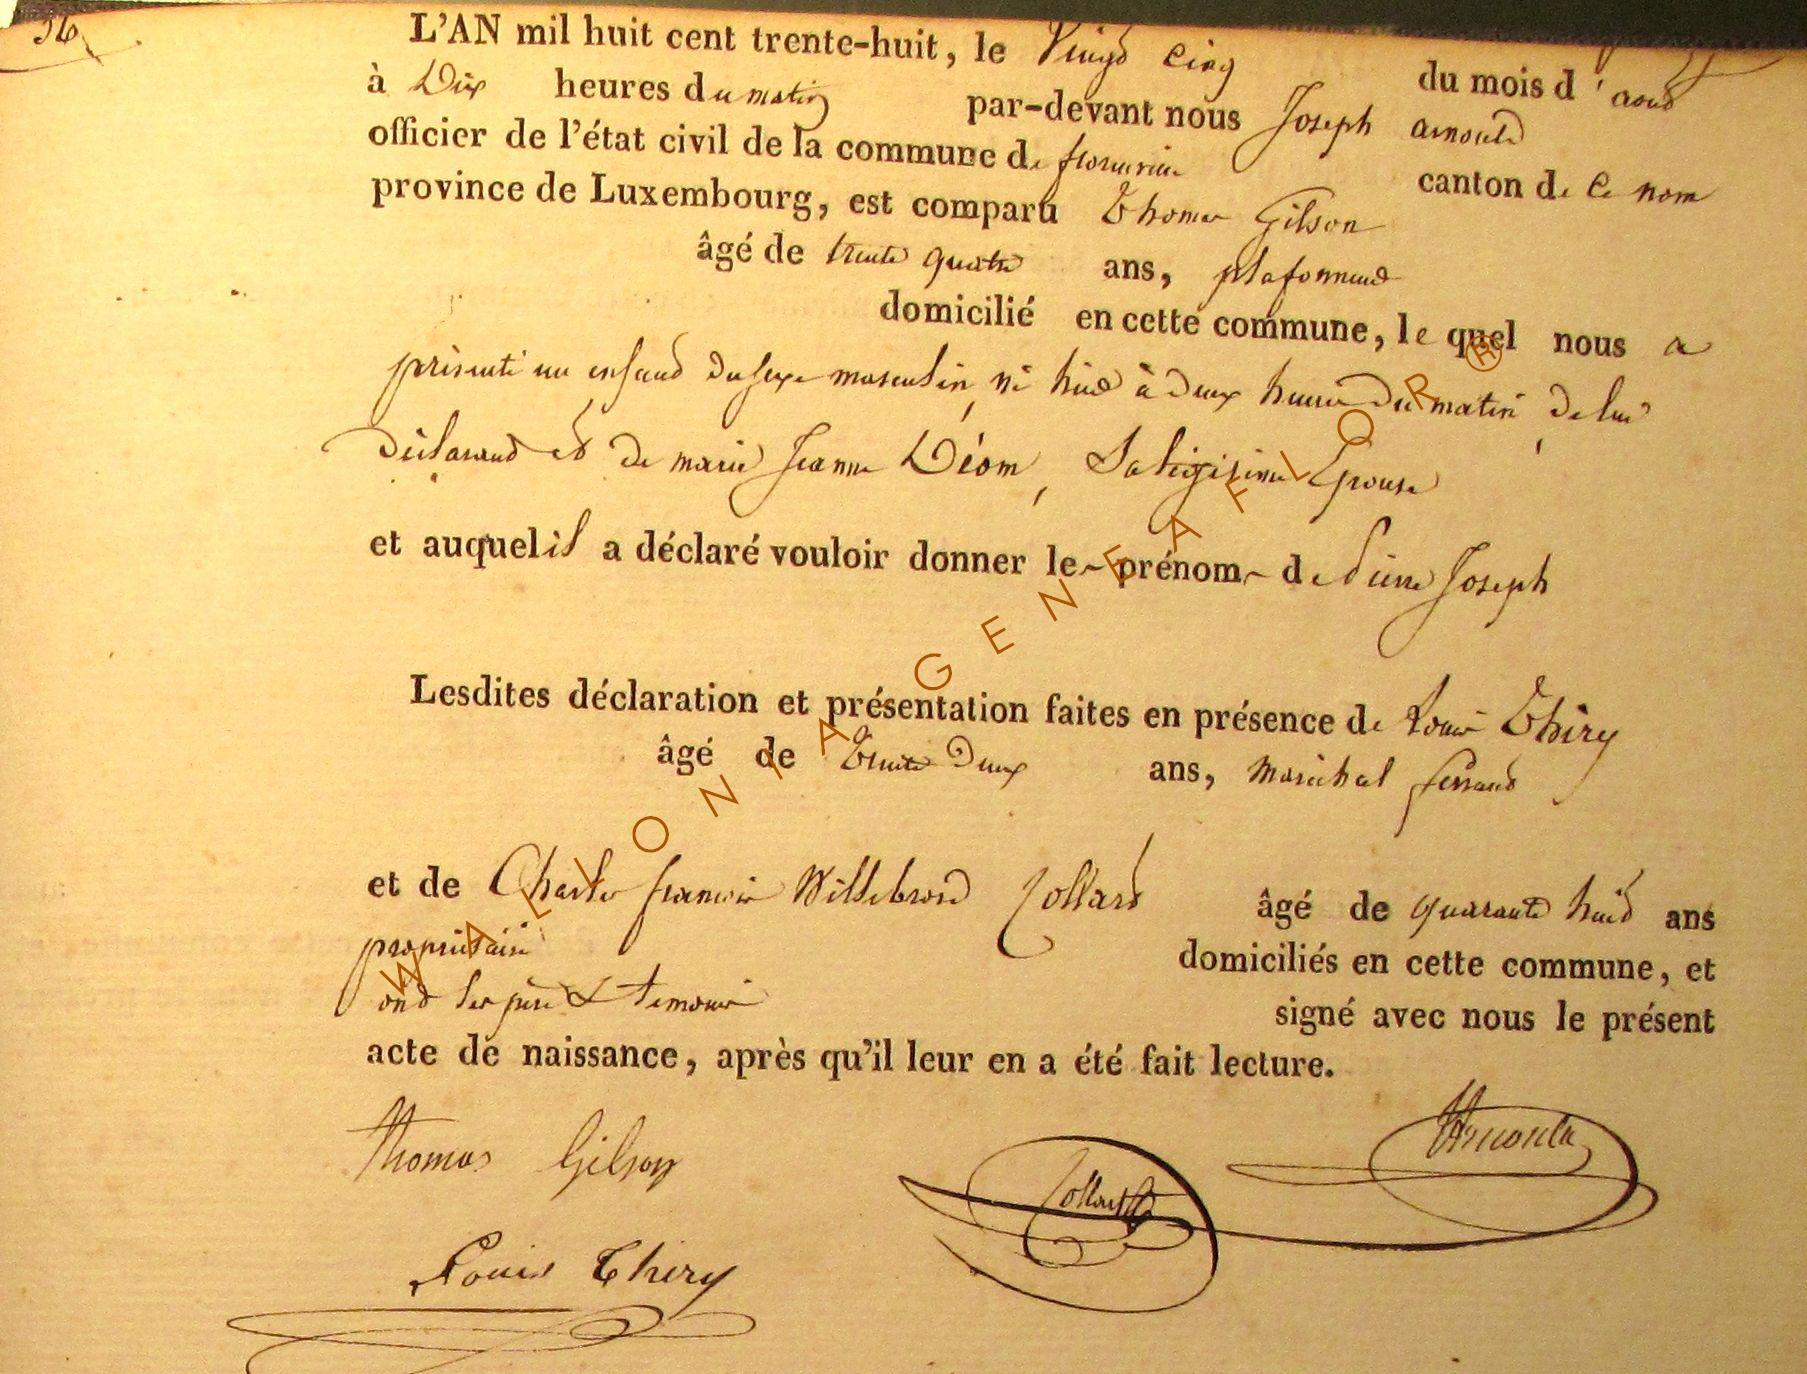 56
L'AN mil huit cent trente-huit, le Vingt cinq du mois d'aout
à Dix heures du matin par-devant nous Joseph arnould
officier de l'état civil de la commune de florenville canton de ce nom
province de Luxembourg, est comparu Thomas Gilson
âgé de trente quatre ans, plafonneur
domicilié en cette commune, lequel nous a
présenté un enfant du sexe masculin, né hier à deux heures du matin, de lui
déclarant et de marie Jeanne Déom, Sa légitime Epouse
et auquel il a déclaré vouloir donner le prénom de Pierre Joseph
Lesdites déclaration et présentation faites en présence de Louis Thiry
âgé de trente Deux ans, maréchal ferrant
et de Charles françois Willebrord Collard âgé de quarante huit ans
propriétaire domiciliés en cette commune, et
ont les père & temoins signé avec nous le présent
acte de naissance, après qu'il leur en a été fait lecture.
Thomas Gilson
Collard
Arnould
Louis Thiry
WALLONIA GENEAFLOR®